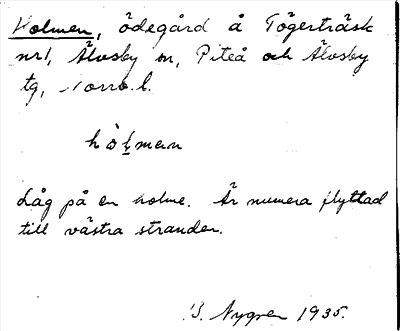 Holmen, ödegård å Tögerträsk
nr 1, Älvsby sn, Piteå och Älvsby
tg, Norrb. l.
hòlman
Låg på en holme. Är numera flyttad
till västra stranden.
B. Nygren 1935.